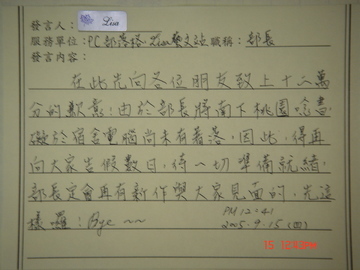 發言人: Lisa
服務單位: PC部落格 藝文站 職稱: 部長
發言內容:
在此先向各位朋友致上十二萬
分的歉意;由於部長將南下桃園唸書,
礙於宿舍電腦尚未有着落,因此,得再
向大家告假數日,待一切準備就緒,
部長定會再有新作與大家見面的,先這
樣囉!Bye ~~
PM 12:41
2005.9.15 (四)